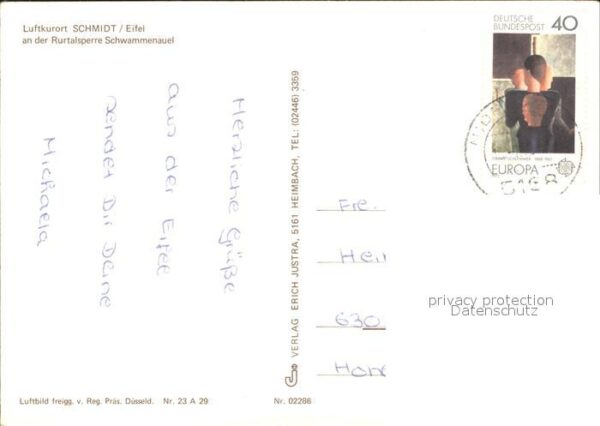 Luftkurort SCHMIDT / Eifel
an der Rurtalsperre Schwammenauel
DEUTSCHE
BUNDESPOST
40
EUROPA
5168
Herzliche Grüße
aus der Eifel
sendet Dir Deine
Michaela
VERLAG ERICH JUSTRA, 5161 HEIMBACH, TEL: (02446) 3359
Fre.
630
privacy protection
Datenschutz
Luftbild freigg. v. Reg. Präs. Düsseld. Nr. 23 A 29
Nr. 02286